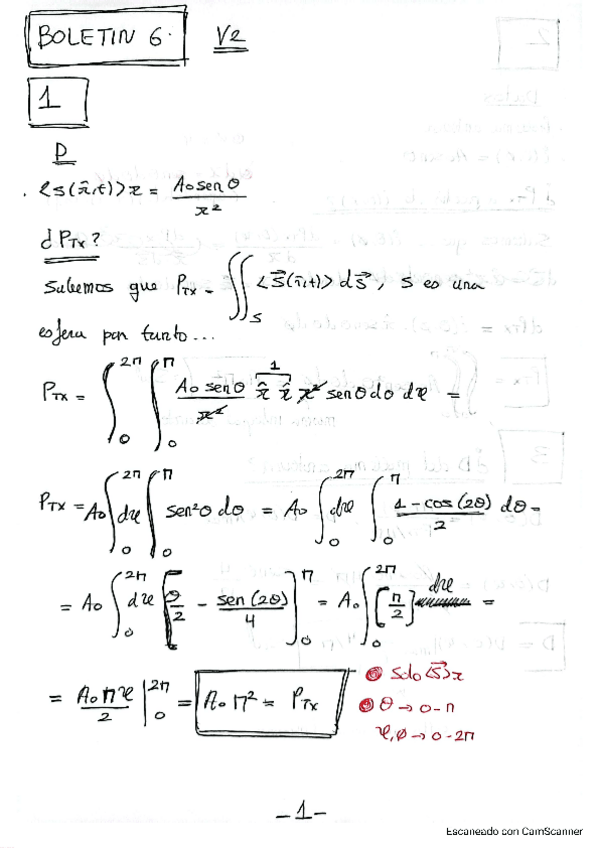 BOLETIN 6. V2
1
D
<s(r̂,t)>r = Ao sen θ / r²
¿ PTx ?
Sabemos que PTx = ∬S <S⃗(r̂,t)> dS⃗, S es una
esfera por tanto...
PTx = ∫₀^2π ∫₀^π Ao sen θ / r² r̂ r̂ r² sen θ dθ dφ =
1
PTx = Ao ∫₀^2π dφ ∫₀^π sen²θ dθ = Ao ∫₀^2π dφ ∫₀^π 1 - cos (2θ) / 2 dθ =
= Ao ∫₀^2π dφ [θ/2 - sen (2θ)/4]₀^π = Ao ∫₀^2π [π/2] dφ =
= Ao π φ / 2 |₀^2π = Ao π² = PTx
• Solo <S⃗>r
• θ → 0 - π
φ, ϕ → 0 - 2π
-1-
Escaneado con CamScanner